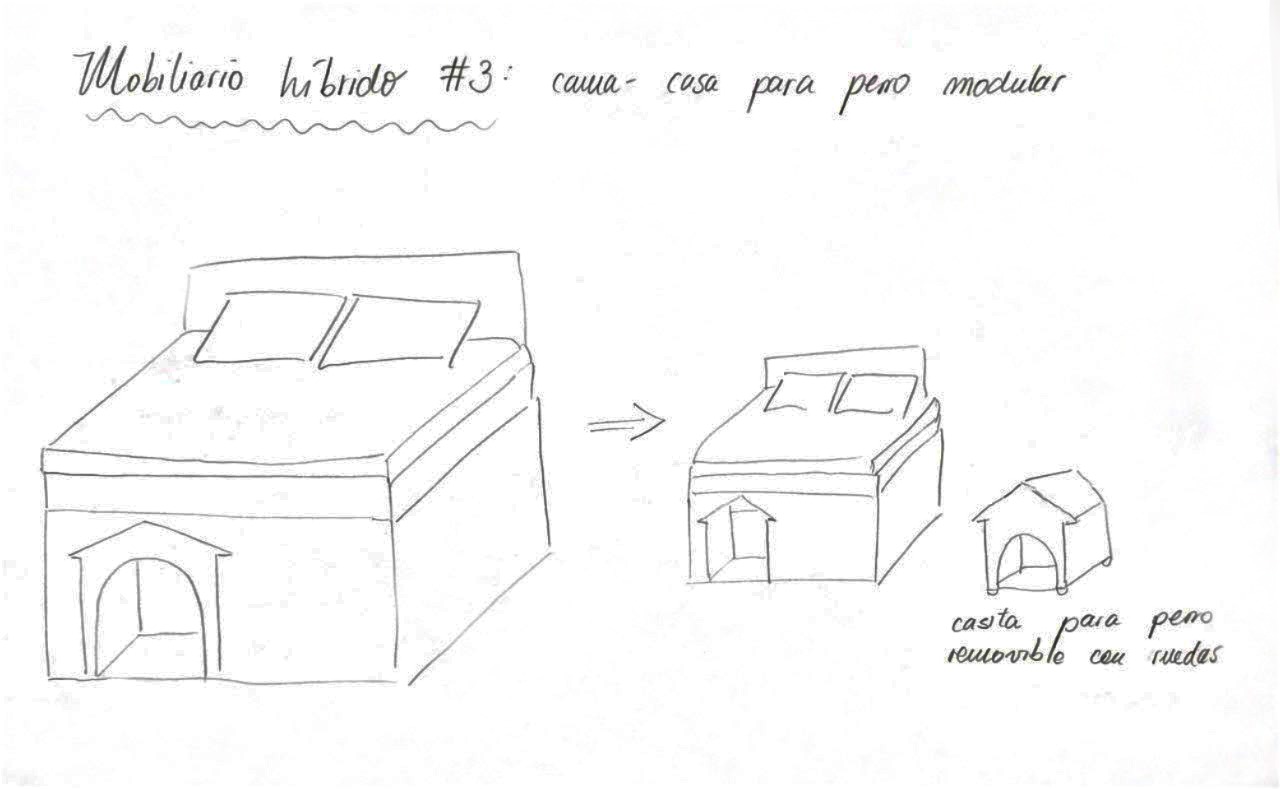 Mobiliario híbrido #3: cama-casa para perro modular
casita para perro
removible con ruedas